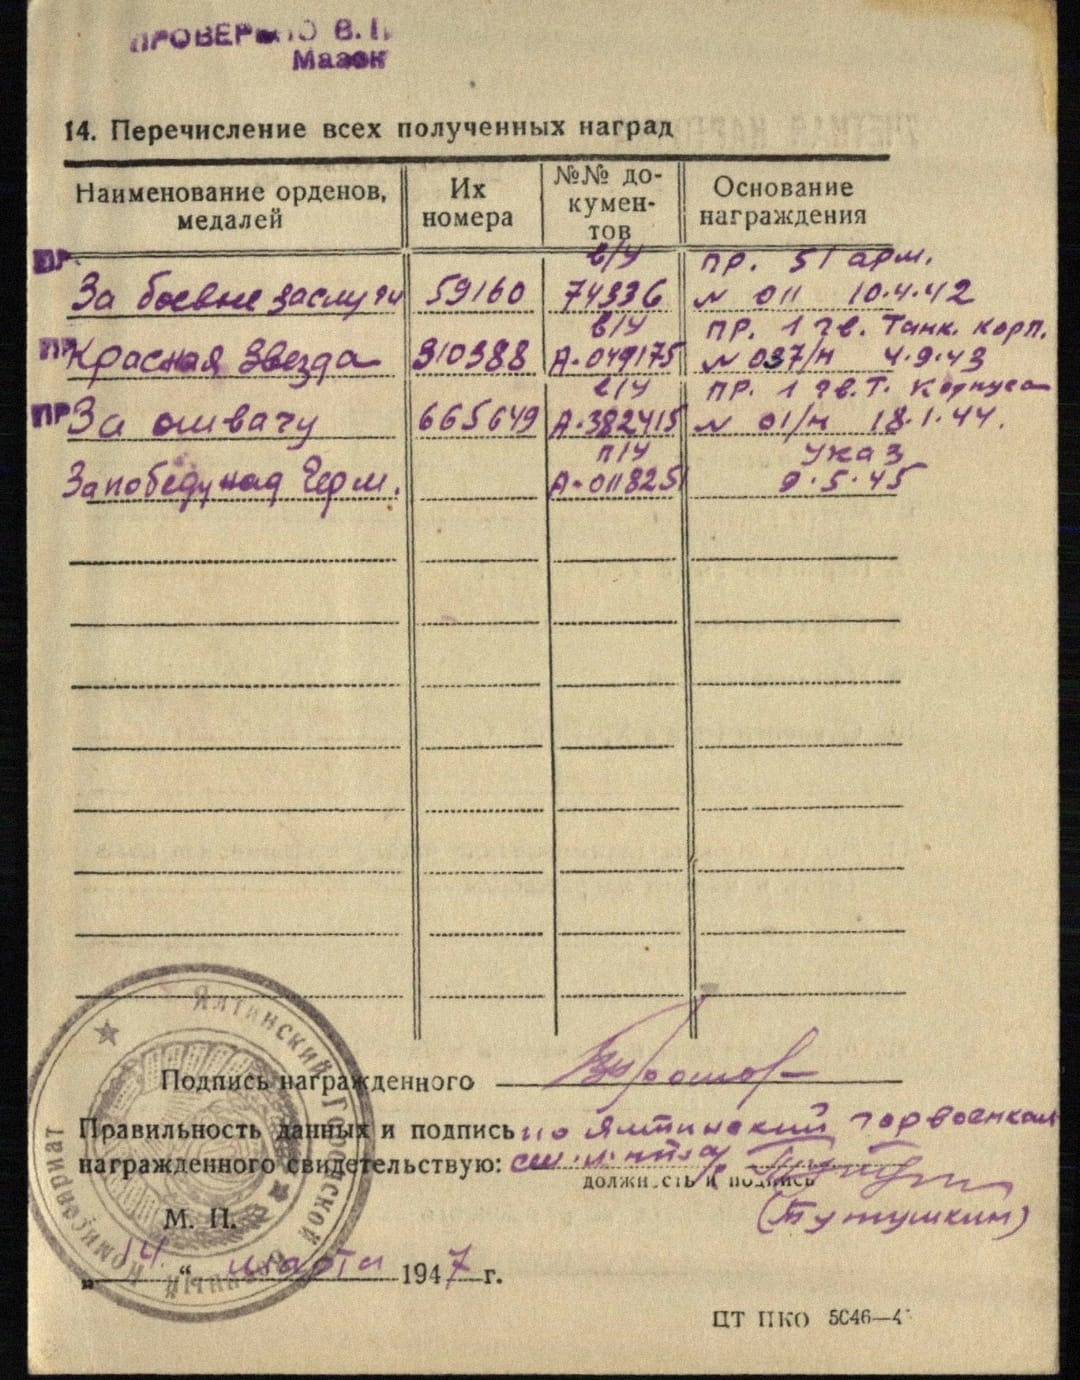 ПРОВЕРЕНО В.
14. Перечисление всех полученных наград
Наименование орденов, медалей
Их номера
№№ документов
Основание награждения
ПР
в/у
пр. 51 арм.
За боевые заслуги 59160 74336 № 011 10.4.42
в/у
пр. 1 гв. Танк. корп.
ПР Красная Звезда 310388 А-049175 № 037/н 4.9.43
в/у
пр. 1 гв. Т. Корпуса
ПР За отвагу 665649 А-382415 № 01/н 18.1.44.
п/у
Указ
За победу над Герм. А-0118251 9.5.45
Подпись награжденного
Правильность данных и подпись по Ялтинский горвоенком
награжденного свидетельствую:
должность и подпись
(Тутушкин)
М. П.
„14“ марта 1947 г.
Ялтинский Городской Военный Комиссариат
ЦТ ПКО 5046—4